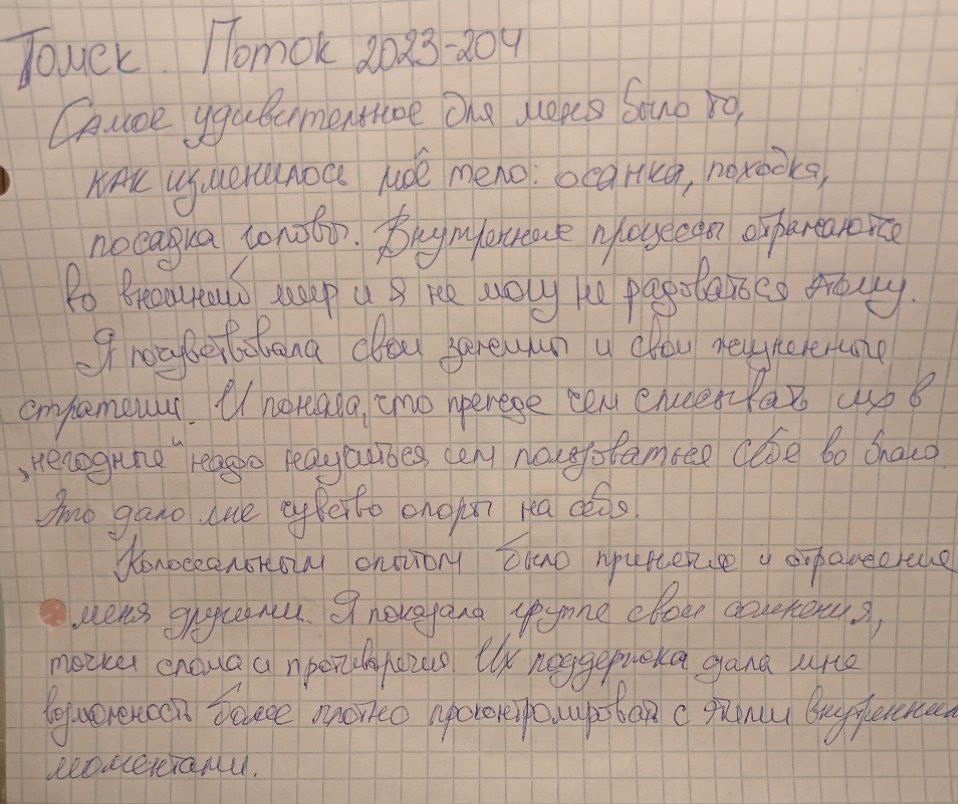 Томск. Поток 2023-204
Самое удивительное для меня было то,
как изменилось моё тело: осанка, походка,
посадка головы. Внутренние процессы отражаются
во внешний мир и я не могу не радоваться этому.
Я почувствовала свои зажимы и свои жизненные
стратегии. И поняла, что прежде чем списывать их в
"негодные" надо научиться ими пользоваться себе во благо.
Это дало мне чувство опоры на себя.
Колоссальным опытом было принятие и отражение
меня другими. Я показала группе свои сомнения,
точки слома и противоречия. Их поддержка дала мне
возможность более плотно проконтролировать с этими внутренними
моментами.